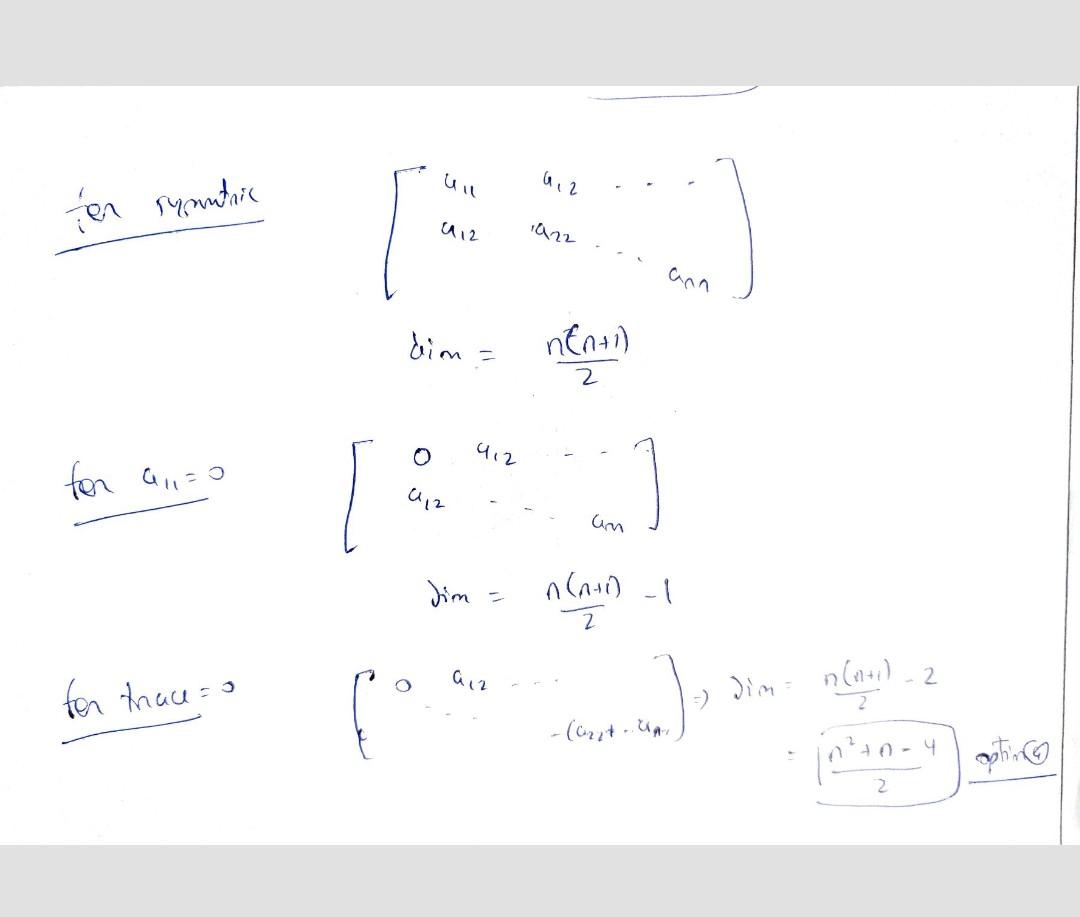 for symmetric
a11 a12 . . . .
a12 a22 . . . . .
ann
dim = n(n+1)/2
for a11=0
0 a12 - - -
a12 - - -
ann
dim = n(n+1)/2 - 1
for trace=0
0 a12 - - - -
- - - -
-(a22+ ..
⇒ dim = n(n+1)/2 - 2
= n²+n-4/2 option